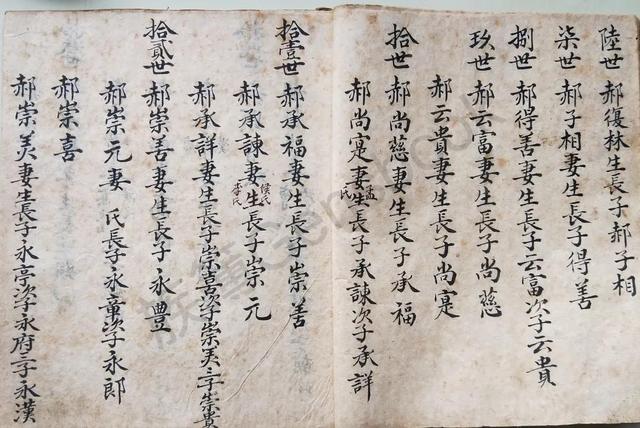 陸世 郝復林生長子郝子相
柒世 郝子相妻生長子得善
捌世 郝得善妻生長子云富次子云貴
玖世 郝云富妻生長子尚慈
郝云貴妻生長子尚寔
拾世 郝尚慈妻生長子承福
郝尚寔妻孟氏生長子承諫次子承詳
拾壹世 郝承福妻生長子崇善
郝承諫妻侯氏李氏生長子崇元
郝承詳妻生長子崇喜次子崇美三子崇貴
拾貳世 郝崇善妻生長子永豐
郝崇元妻 氏長子永童次子永郎
郝崇喜
郝崇美妻生長子永亭次子永府三子永漢